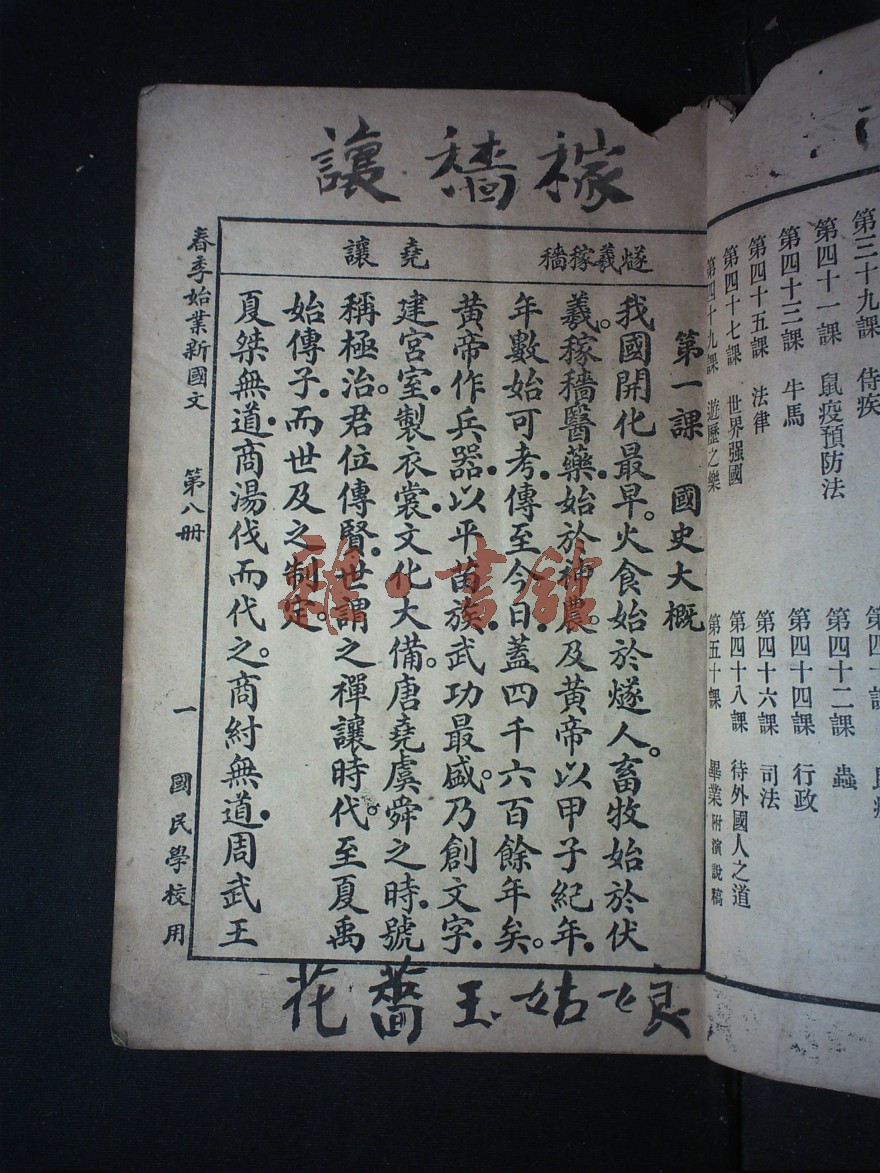 第三十九課 侍疾
第四十一課 鼠疫預防法
第四十二課 蟲
第四十三課 牛馬
第四十四課 行政
第四十五課 法律
第四十六課 司法
第四十七課 世界强國
第四十八課 待外國人之道
第四十九課 遊歷之樂
第五十課 畢業附演說稿
稼穡讓
燧羲稼穡
堯讓
第一課 國史大概
我國開化最早。火食始於燧人。畜牧始於伏
羲。稼穡醫藥。始於神農。及黃帝以甲子紀年。
年數始可考。傳至今日。蓋四千六百餘年矣。
黃帝作兵器。以平苗族。武功最盛。乃創文字。
建宮室。製衣裳。文化大備。唐堯虞舜之時。號
稱極治。君位傳賢。世謂之禪讓時代。至夏禹
始傳子。而世及之制定。
夏桀無道。商湯伐而代之。商紂無道。周武王
春季始業新國文 第八冊 一 國民學校用
花薔玉姑娘
雜·書館